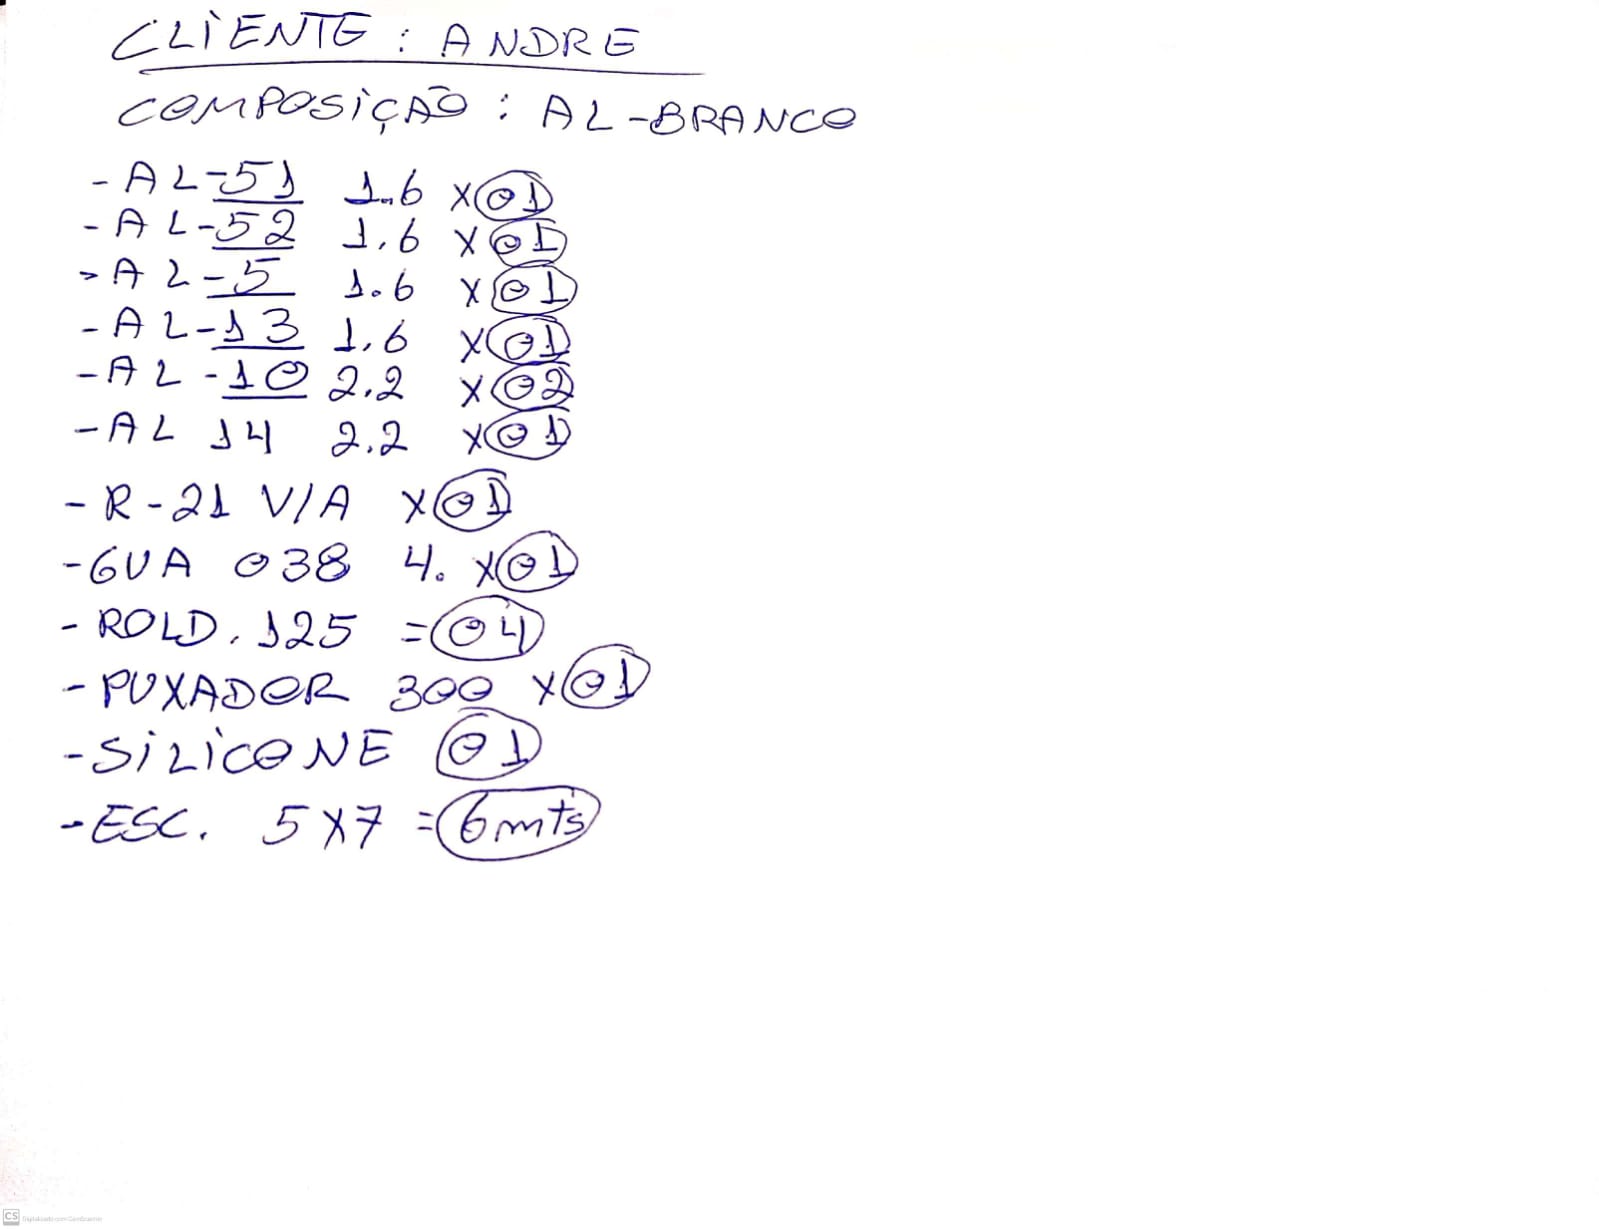 CLIENTE : ANDRE
COMPOSIÇÃO : AL-BRANCO
- AL-51 1.6 x 01
- AL-52 1.6 x 01
- AL-5 1.6 x 01
- AL-13 1.6 x 01
- AL-10 2.2 x 02
- AL 14 2.2 x 01
- R-21 V/A x 01
- GUA 038 4. x 01
- ROLD. 125 = 04
- PUXADOR 300 x 01
- SILICONE 01
- ESC. 5x7 = 6mts
CS Digitalizado com CamScanner